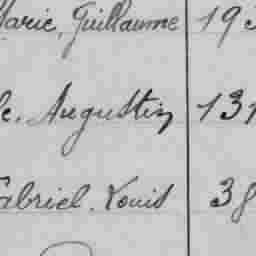 Marie, Guillaume 193
le, Augustin 131
Gabriel, Louis 38